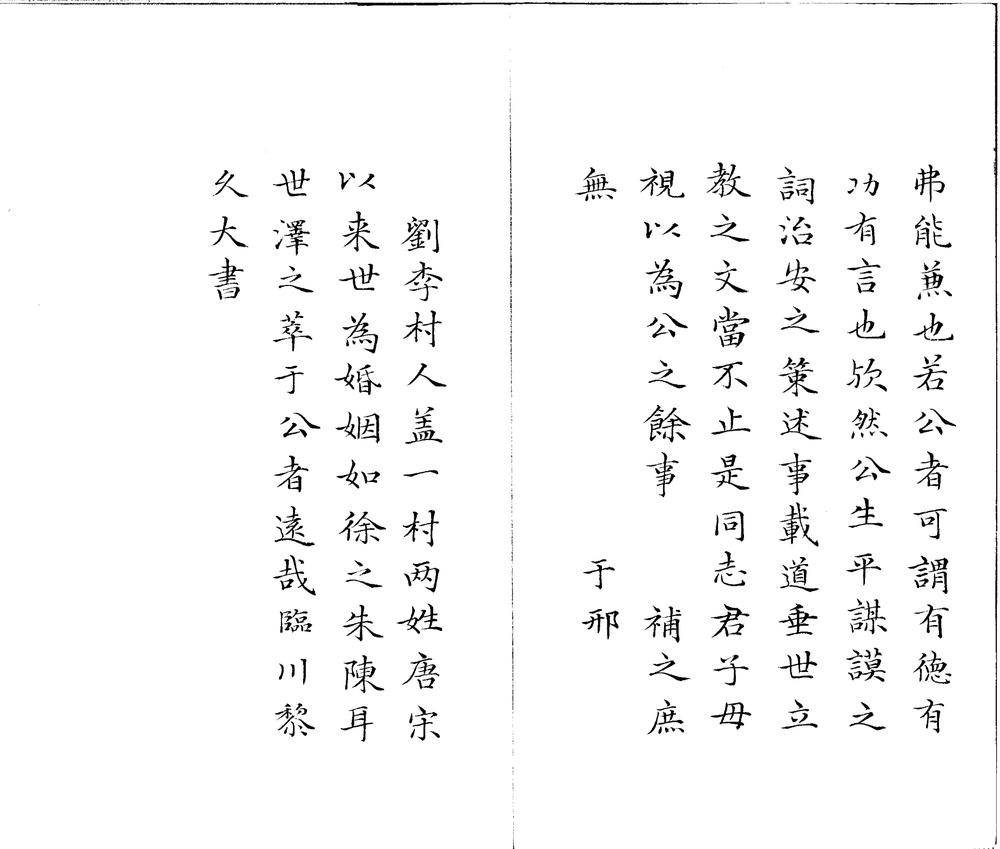 弗能兼也若公者可謂有德有
功有言也欤然公生平謀謨之
詞治安之策述事載道垂世立
教之文當不止是同志君子毋
視以為公之餘事　　補之庶
無　　　　　　　于邢
劉李村人盖一村两姓唐宋
以来世為婚姻如徐之朱陳耳
世澤之萃于公者遠哉臨川黎
久大書